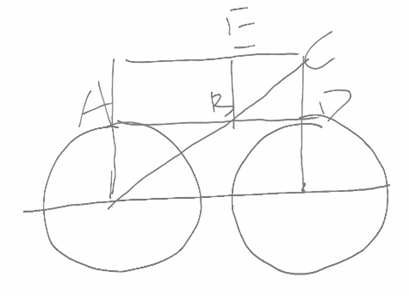 E
C
A
B
D